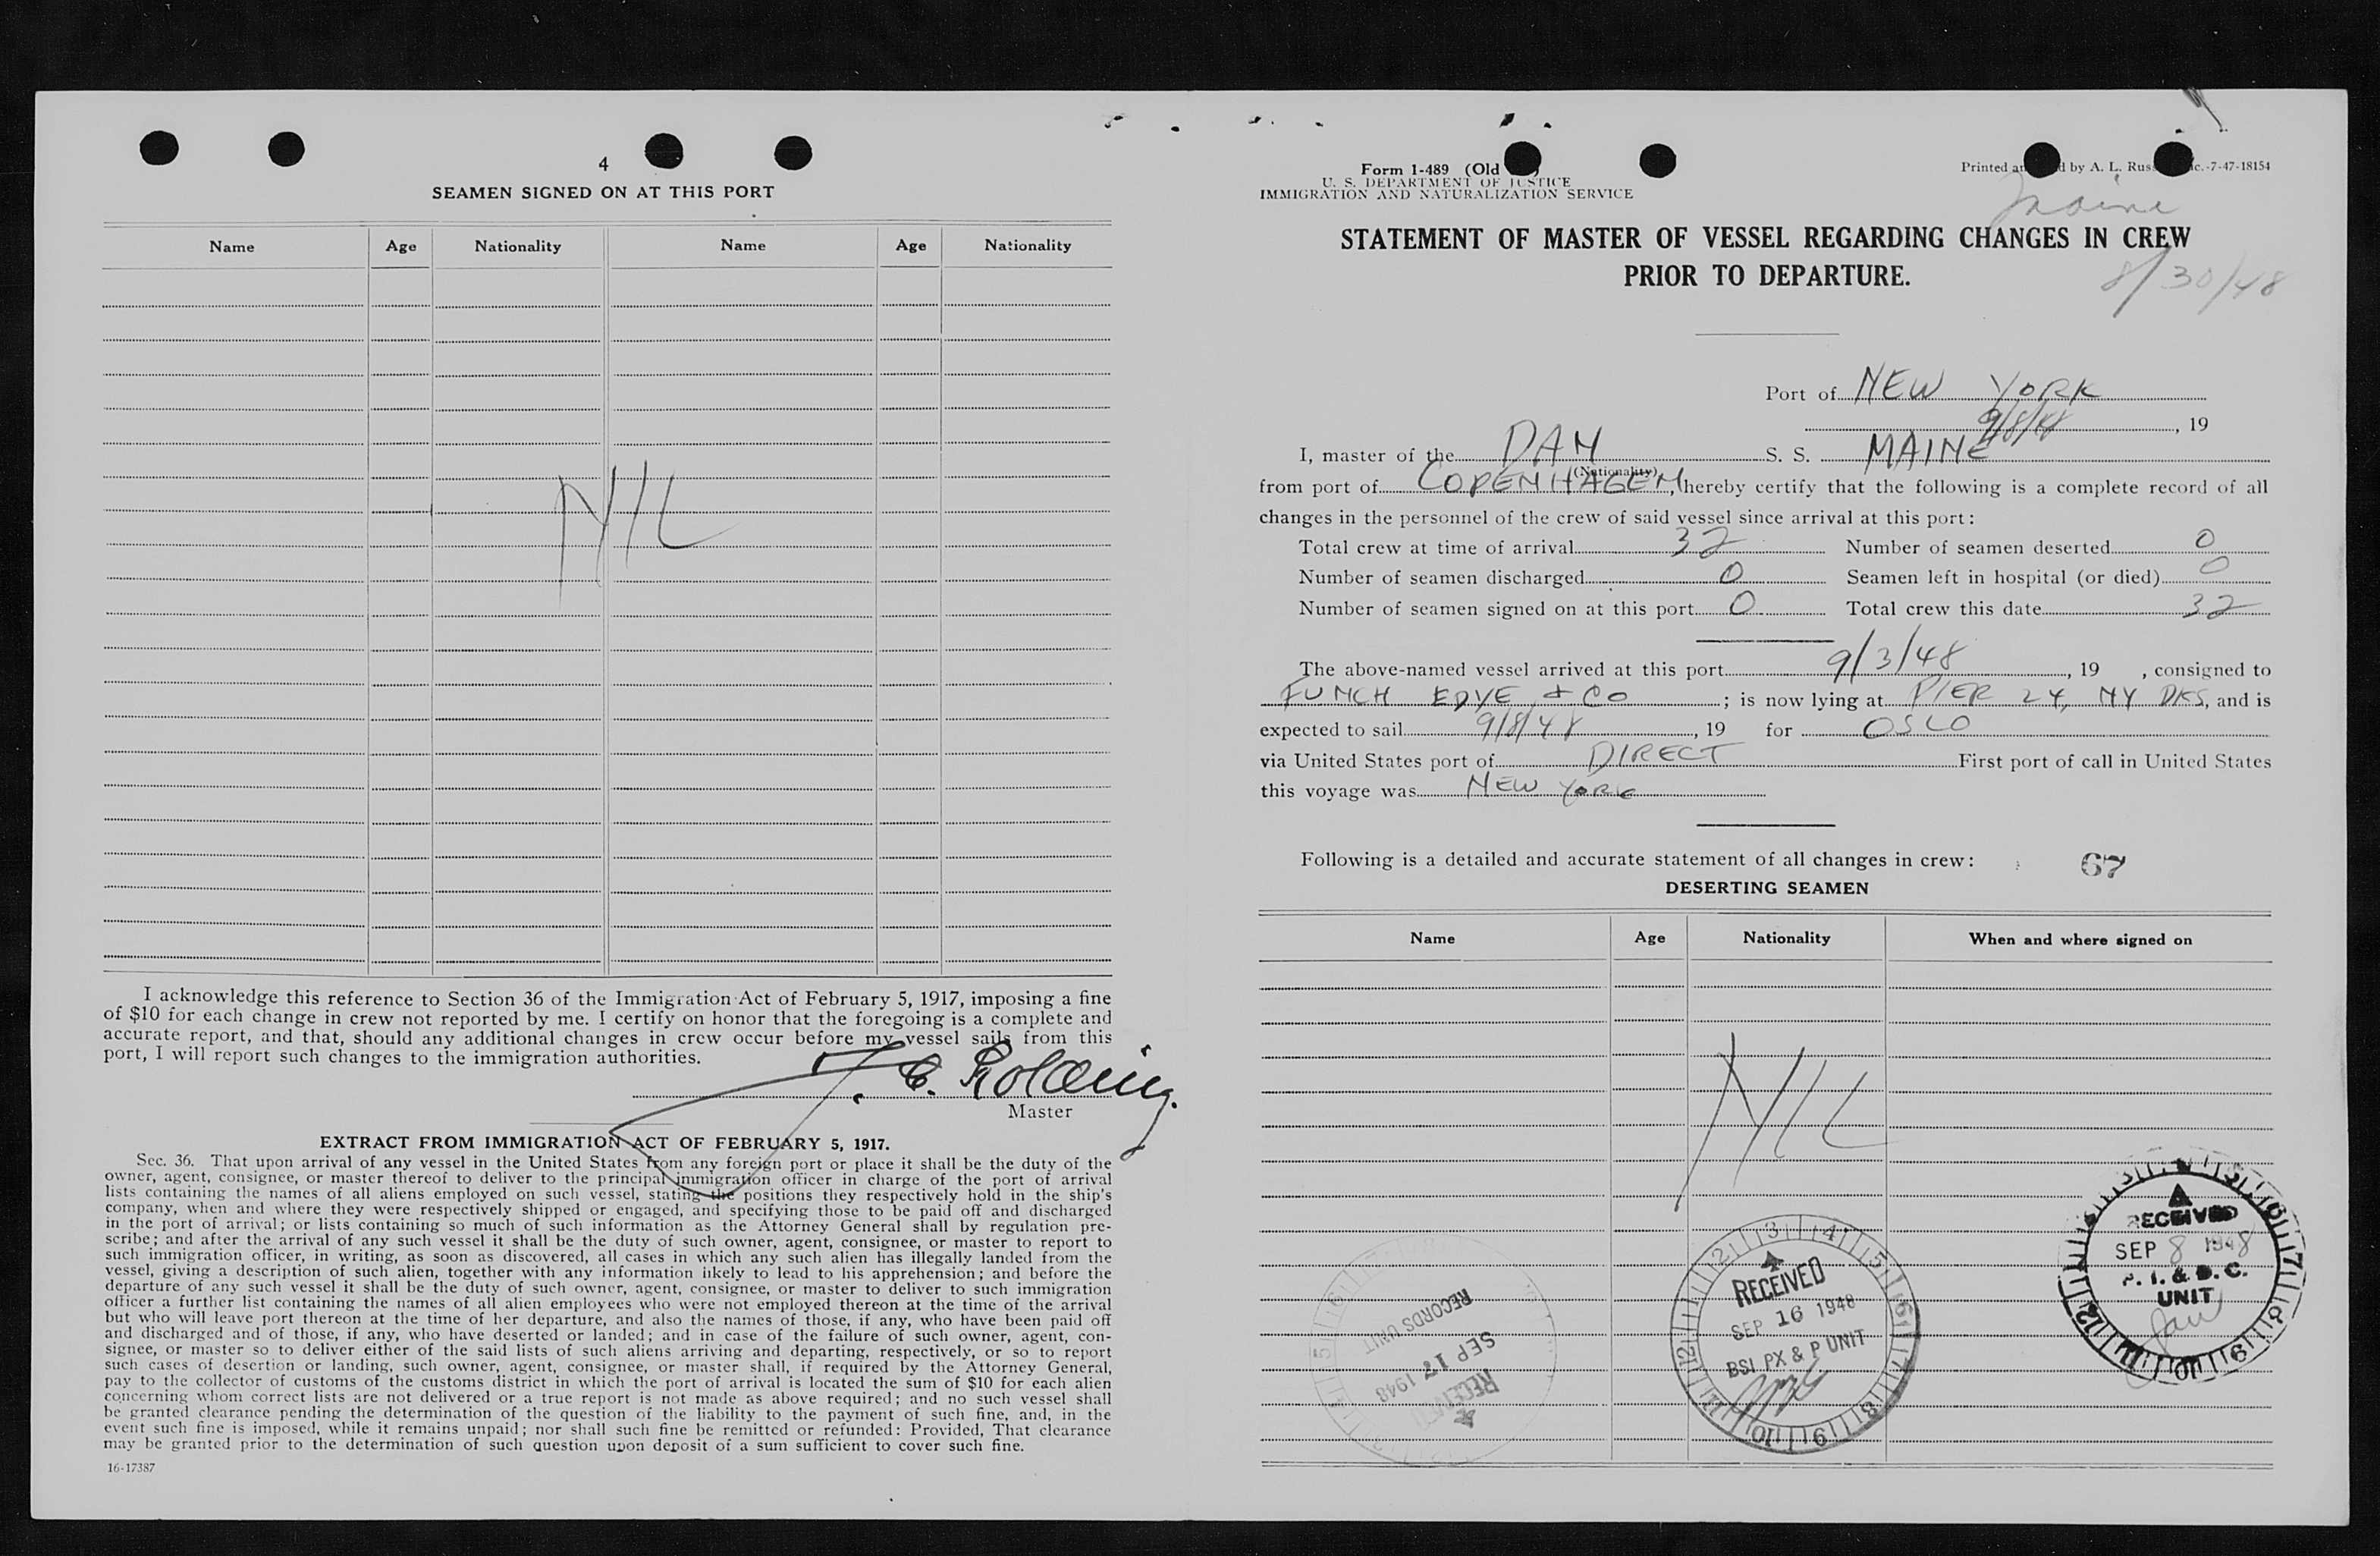 4
SEAMEN SIGNED ON AT THIS PORT
Name Age Nationality Name Age Nationality
NIL
I acknowledge this reference to Section 36 of the Immigration Act of February 5, 1917, imposing a fine
of $10 for each change in crew not reported by me. I certify on honor that the foregoing is a complete and
accurate report, and that, should any additional changes in crew occur before my vessel sails from this
port, I will report such changes to the immigration authorities.
Master
EXTRACT FROM IMMIGRATION ACT OF FEBRUARY 5, 1917.
Sec. 36. That upon arrival of any vessel in the United States from any foreign port or place it shall be the duty of the
owner, agent, consignee, or master thereof to deliver to the principal immigration officer in charge of the port of arrival
lists containing the names of all aliens employed on such vessel, stating the positions they respectively hold in the ship's
company, when and where they were respectively shipped or engaged, and specifying those to be paid off and discharged
in the port of arrival; or lists containing so much of such information as the Attorney General shall by regulation pre-
scribe; and after the arrival of any such vessel it shall be the duty of such owner, agent, consignee, or master to report to
such immigration officer, in writing, as soon as discovered, all cases in which any such alien has illegally landed from the
vessel, giving a description of such alien, together with any information likely to lead to his apprehension; and before the
departure of any such vessel it shall be the duty of such owner, agent, consignee, or master to deliver to such immigration
officer a further list containing the names of all alien employees who were not employed thereon at the time of the arrival
but who will leave port thereon at the time of her departure, and also the names of those, if any, who have been paid off
and discharged and of those, if any, who have deserted or landed; and in case of the failure of such owner, agent, con-
signee, or master so to deliver either of the said lists of such aliens arriving and departing, respectively, or so to report
such cases of desertion or landing, such owner, agent, consignee, or master shall, if required by the Attorney General,
pay to the collector of customs of the customs district in which the port of arrival is located the sum of $10 for each alien
concerning whom correct lists are not delivered or a true report is not made as above required; and no such vessel shall
be granted clearance pending the determination of the question of the liability to the payment of such fine, and, in the
event such fine is imposed, while it remains unpaid; nor shall such fine be remitted or refunded: Provided, That clearance
may be granted prior to the determination of such question upon deposit of a sum sufficient to cover such fine.
16-17387
Form I-489 (Old
U. S. DEPARTMENT OF JUSTICE
IMMIGRATION AND NATURALIZATION SERVICE
Printed by A. L. Rus 7-47-18154
Maine
STATEMENT OF MASTER OF VESSEL REGARDING CHANGES IN CREW
PRIOR TO DEPARTURE.
8/30/48
Port of NEW YORK
9/8/48, 19
I, master of the DAN S. S. MAINE
(Nationality)
from port of COPENHAGEN, hereby certify that the following is a complete record of all
changes in the personnel of the crew of said vessel since arrival at this port:
Total crew at time of arrival 32 Number of seamen deserted 0
Number of seamen discharged 0 Seamen left in hospital (or died) 0
Number of seamen signed on at this port 0 Total crew this date 32
The above-named vessel arrived at this port 9/3/48, 19 , consigned to
FUNCH EDYE + CO; is now lying at PIER 24, NY DKS, and is
expected to sail 9/8/48, 19 for OSLO
via United States port of DIRECT First port of call in United States
this voyage was NEW YORK
Following is a detailed and accurate statement of all changes in crew: 67
DESERTING SEAMEN
Name Age Nationality When and where signed on
NIL
RECEIVED
SEP 8 1948
P. I. & D. C.
UNIT
RECEIVED
SEP 16 1948
BSI PX & P UNIT
RECEIVED
SEP 17 1948
RECORDS UNIT